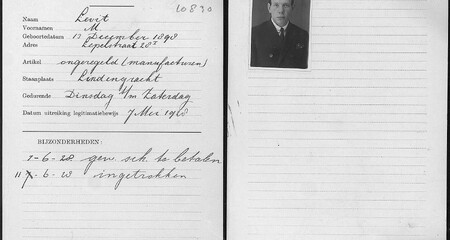 10830
Naam Levit
Voornamen M
Geboortedatum 13 December 1898
Adres Lepelstraat 28 I
Artikel ongeregeld (manufacturen)
Staanplaats Lindengracht
Gedurende Dinsdag t/m Zaterdag
Datum uitreiking legitimatiebewijs 7 Mei 1928
BIJZONDERHEDEN:
1-6-28 gew. sch. te betalen
11-6-28 ingetrokken